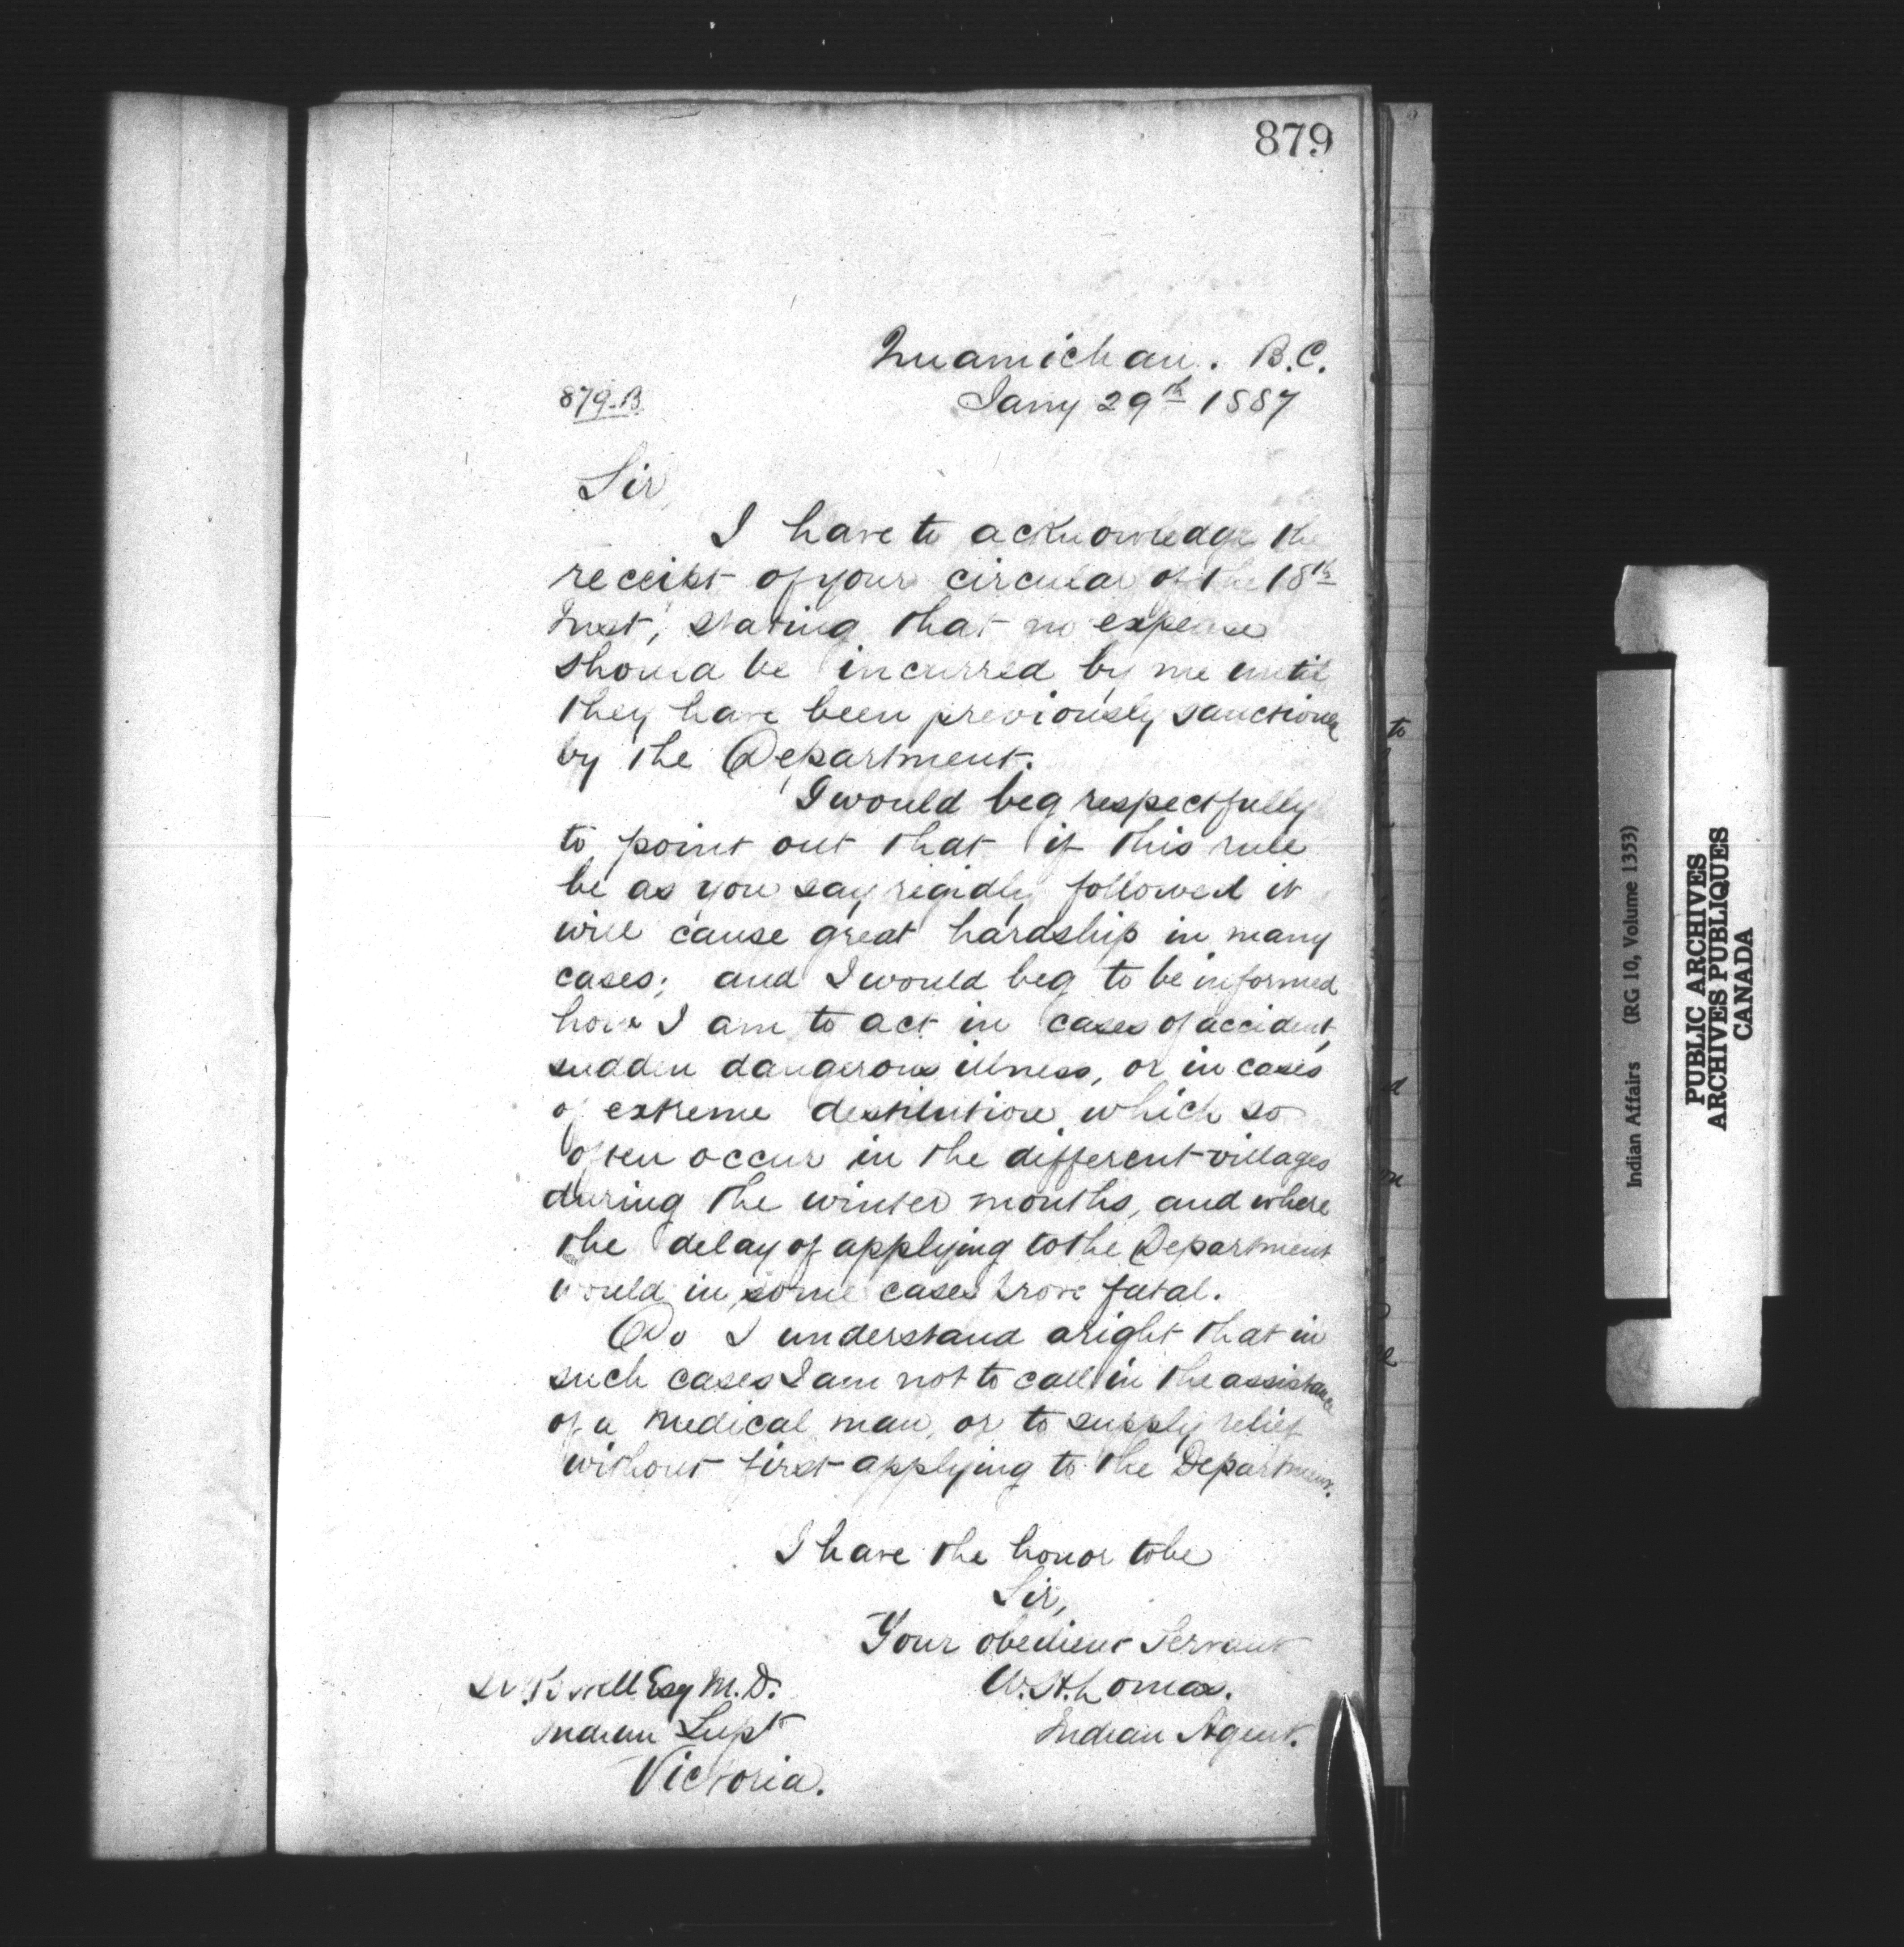 879
Quamichan. B.C.
879-B
Jany 29th 1887
Sir,
I have to acknowledge the
receipt of your circular of the 18th
Inst, stating that no expense
should be incurred by me until
they have been previously sanctioned
by the Department.
I would beg respectfully
to point out that if this rule
be as you say rigidly followed it
will cause great hardship in many
cases; and I would beg to be informed
how I am to act in cases of accident,
sudden dangerous illness, or in cases
of extreme destitution which so
often occur in the different villages
during the winter months, and where
the delay of applying to the Department
would in some cases prove fatal.
Do I understand aright that in
such cases I am not to call in the assistance
of a medical man, or to supply relief
without first applying to the Department.
I have the honor to be
Sir,
Your obedient Servant
W.H. Lomas.
Indian Agent.
Powell Esq M.D.
Indian Supt
Victoria.
to
Indian Affairs (RG 10, Volume 1353)
PUBLIC ARCHIVES
ARCHIVES PUBLIQUES
CANADA